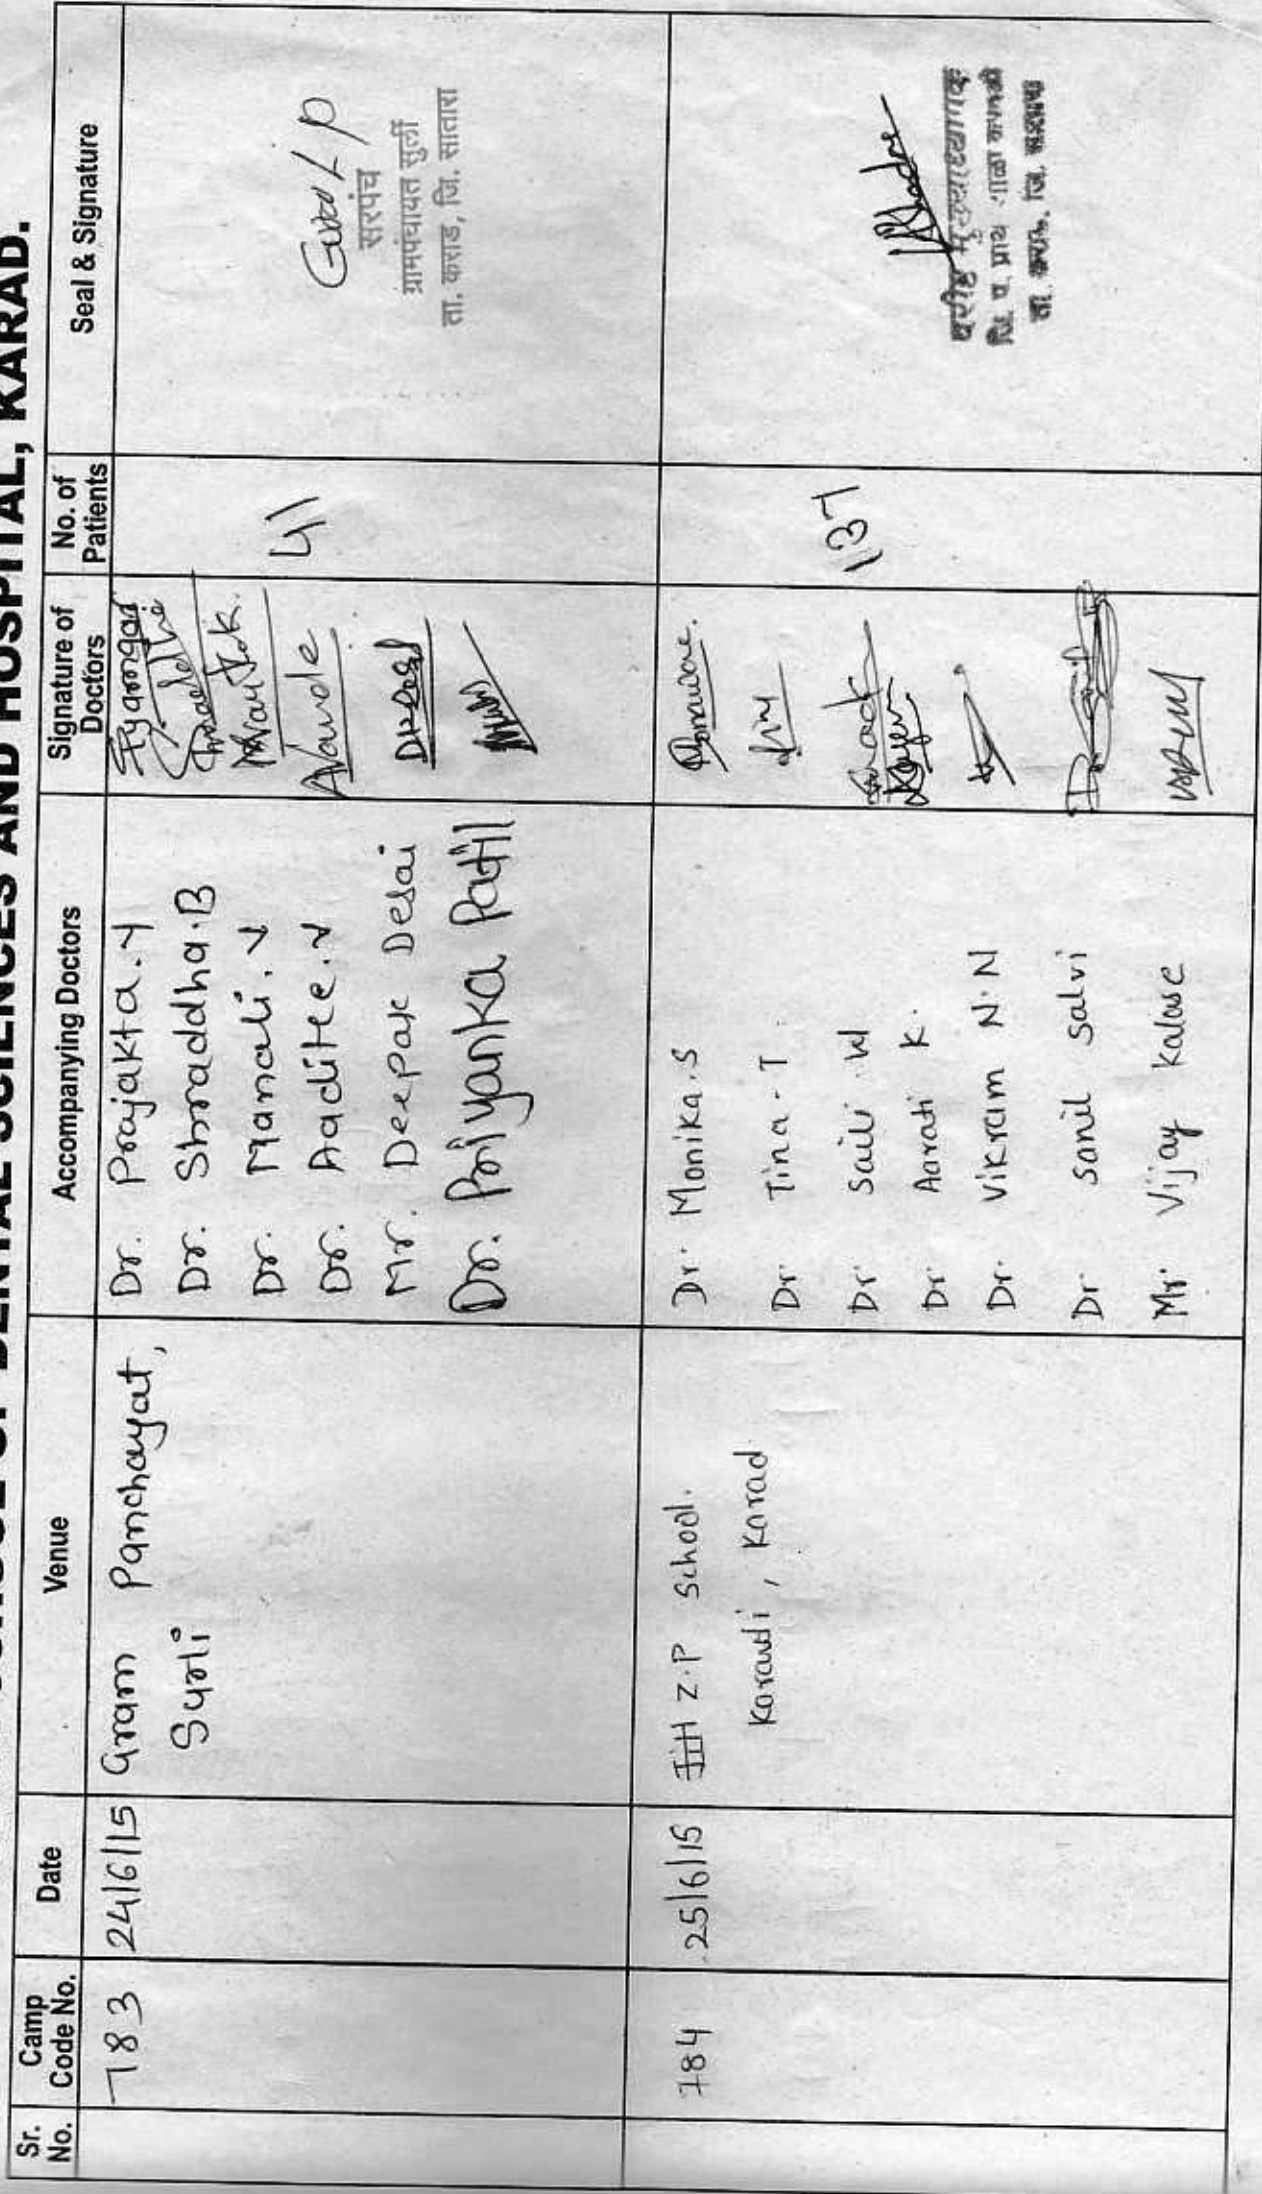 DENTAL SCIENCES AND HOSPITAL, KARAD.
Sr. No.
Camp Code No.
Date
Venue
Accompanying Doctors
Signature of Doctors
No. of Patients
Seal & Signature
783
24/6/15
Gram Panchayat,
Surli
Dr. Prajakta.Y
Dr. Shraddha.B
Dr. Manali.V
Dr. Aaditee.V
Mr. Deepak Desai
Dr. Priyanka Patil
41
सरपंच
ग्रामपंचायत सुर्ली
ता. कराड, जि. सातारा
784
25/6/15
Z.P School.
Karawdi, Karad
Dr. Monika.S
Dr. Tina.T
Dr. Saili.W
Dr. Aarati K.
Dr. Vikram N.N
Dr. Sanil Salvi
Mr. Vijay Kalase
137